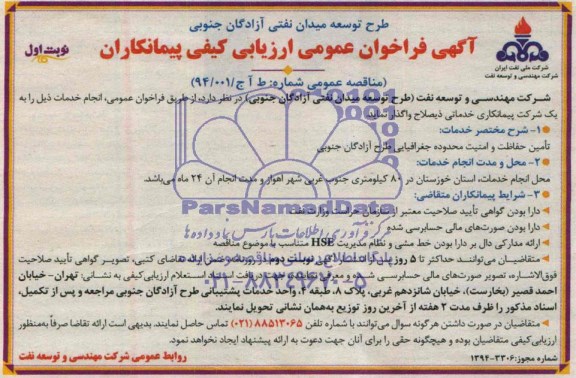 طرح توسعه میدان نفتی آزادگان جنوبی
آگهی فراخوان عمومی ارزیابی کیفی پیمانکاران
نوبت اول
شرکت ملی نفت ایران
شرکت مهندسی و توسعه نفت
(مناقصه عمومی شماره: ط آ ج/۹۴/۰۰۱)
شرکت مهندسی و توسعه نفت (طرح توسعه میدان نفتی آزادگان جنوبی) در نظر دارد، از طریق فراخوان عمومی، انجام خدمات ذیل را به
یک شرکت پیمانکاری خدماتی ذیصلاح واگذار نماید.
۱- شرح مختصر خدمات:
تأمین حفاظت و امنیت محدوده جغرافیایی طرح آزادگان جنوبی
۲- محل و مدت انجام خدمات:
محل انجام خدمات، استان خوزستان در ۸۰ کیلومتری جنوب غربی شهر اهواز و مدت انجام آن ۲۴ ماه می‌باشد.
۳- شرایط پیمانکاران متقاضی:
دارا بودن گواهی تأیید صلاحیت معتبر از سازمان حراست وزارت نفت
دارا بودن صورت‌های مالی حسابرسی شده
ارائه مدارکی دال بر دارا بودن خط مشی و نظام مدیریت HSE متناسب با موضوع مناقصه
متقاضیان می‌توانند حداکثر تا ۵ روز پس از چاپ آگهی نوبت دوم
فوق‌الاشاره، تصویر صورت‌های مالی حسابرسی شده و معرفی‌نامه دریافت اسناد استعلام ارزیابی کیفی به نشانی: تهران- خیابان
احمد قصیر (بخارست)، خیابان شانزدهم غربی، پلاک ۸، طبقه ۴، واحد خدمات پشتیبانی طرح آزادگان جنوبی مراجعه و پس از تکمیل،
اسناد مذکور را ظرف مدت ۲ هفته از آخرین روز توزیع به‌همان نشانی تحویل نمایند.
متقاضیان در صورت داشتن هرگونه سوال می‌توانند با شماره تلفن ۸۸۵۱۳۰۶۵ (۰۲۱) تماس حاصل نمایند. بدیهی است ارائه تقاضا صرفاً به‌منظور
ارزیابی کیفی متقاضیان بوده و هیچگونه حقی را برای آنان جهت دعوت به ارائه پیشنهاد ایجاد نخواهد نمود.
شماره مجوز: ۱۳۹۴-۳۳۰۶
روابط عمومی شرکت مهندسی و توسعه نفت
ParsNamadData
۰۲۱-۸۸۳۴۹۶۷۰-۵